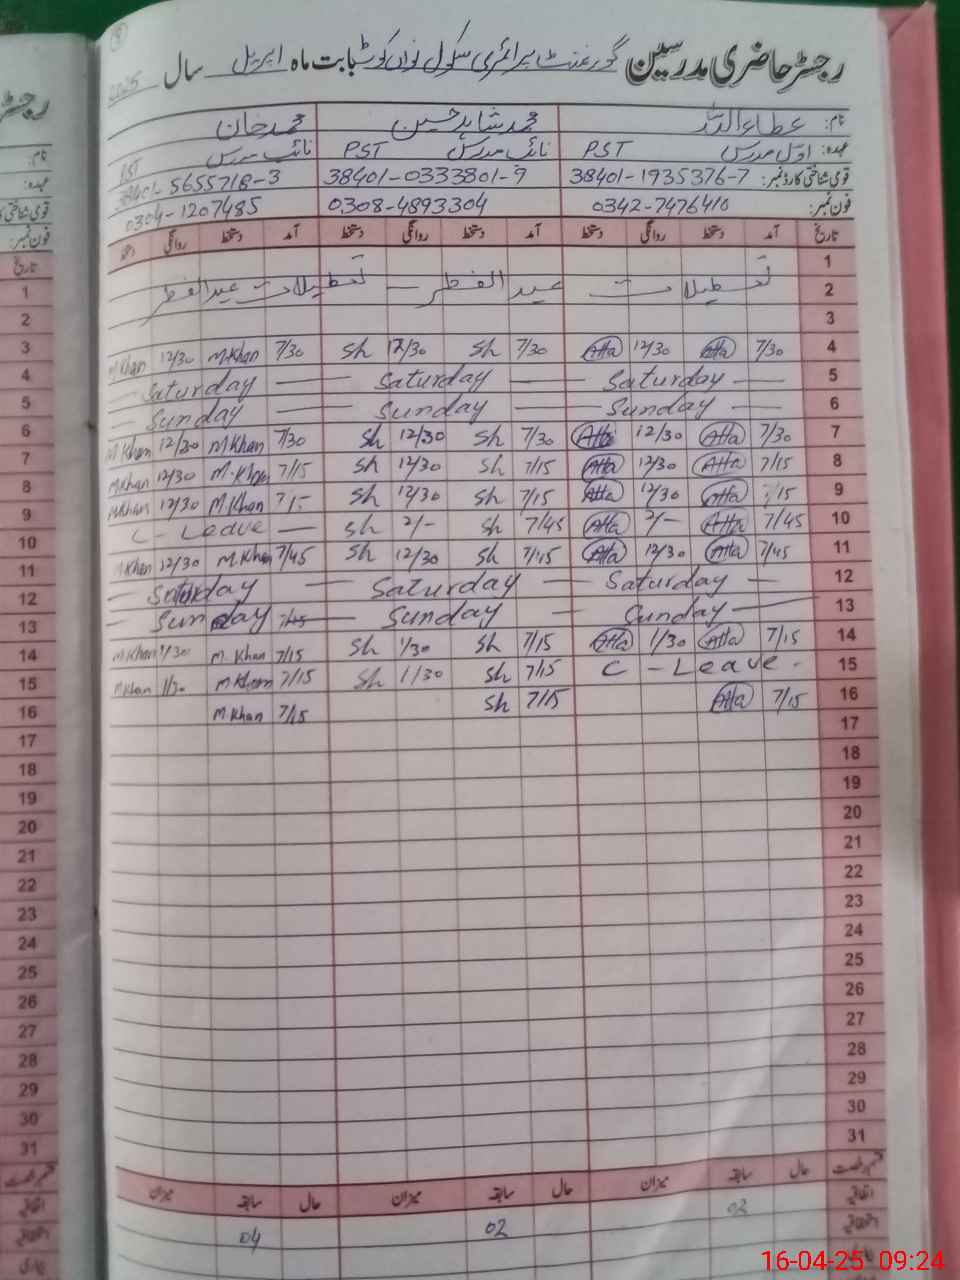 رجسٹر حاضری مدرسین گورنمنٹ پرائمری سکول نواں کوٹ بابت ماہ اپریل سال 2025
نام: عطاء اللہ محمد شاہد حسین محمد خان
عہدہ: اول مدرس PST نائب مدرس PST نائب مدرس PST
قومی شناختی کارڈ نمبر: 38401-1935376-7 38401-0333801-9 38401-5655718-3
فون نمبر: 0342-7476410 0308-4893304 0304-1207485
تاریخ آمد دستخط روانگی دستخط آمد دستخط روانگی دستخط آمد دستخط روانگی دستخط
1
2 تعطیلات عید الفطر — تعطیلات عید الفطر
3
4 7/30 Atta 12/30 Atta 7/30 Sh 12/30 Sh 7/30 M.Khan 12/30 M.Khan
5 Saturday Saturday Saturday
6 Sunday Sunday Sunday
7 7/30 Atta 12/30 Atta 7/30 Sh 12/30 Sh 7/30 M.Khan 12/30 M.Khan
8 7/15 Atta 12/30 Atta 7/15 Sh 12/30 Sh 7/15 M.Khan 12/30 M.Khan
9 7/15 Atta 12/30 Atta 7/15 Sh 12/30 Sh 7/15 M.Khan 12/30 M.Khan
10 7/45 Atta 2/- Atta 7/45 Sh 2/- Sh C-Leave
11 7/45 Atta 12/30 Atta 7/45 Sh 12/30 Sh 7/45 M.Khan 12/30 M.Khan
12 Saturday Saturday Saturday
13 Sunday Sunday Sunday
14 7/15 Atta 1/30 Atta 7/15 Sh 1/30 Sh 7/15 M.Khan 1/30 M.Khan
15 C-Leave 7/15 Sh 1/30 Sh 7/15 M.Khan 1/30 M.Khan
16 7/15 Atta 7/15 Sh 7/15 M.Khan
17
18
19
20
21
22
23
24
25
26
27
28
29
30
31
حال سابقہ میزان حال سابقہ میزان حال سابقہ میزان
اتفاقیہ 02 02 04
رجسٹر
نام:
عہدہ:
فون نمبر:
تاریخ
1
2
3
4
5
6
7
8
9
10
11
12
13
14
15
16
17
18
19
20
21
22
23
24
25
26
27
28
29
30
31
16-04-25 09:24